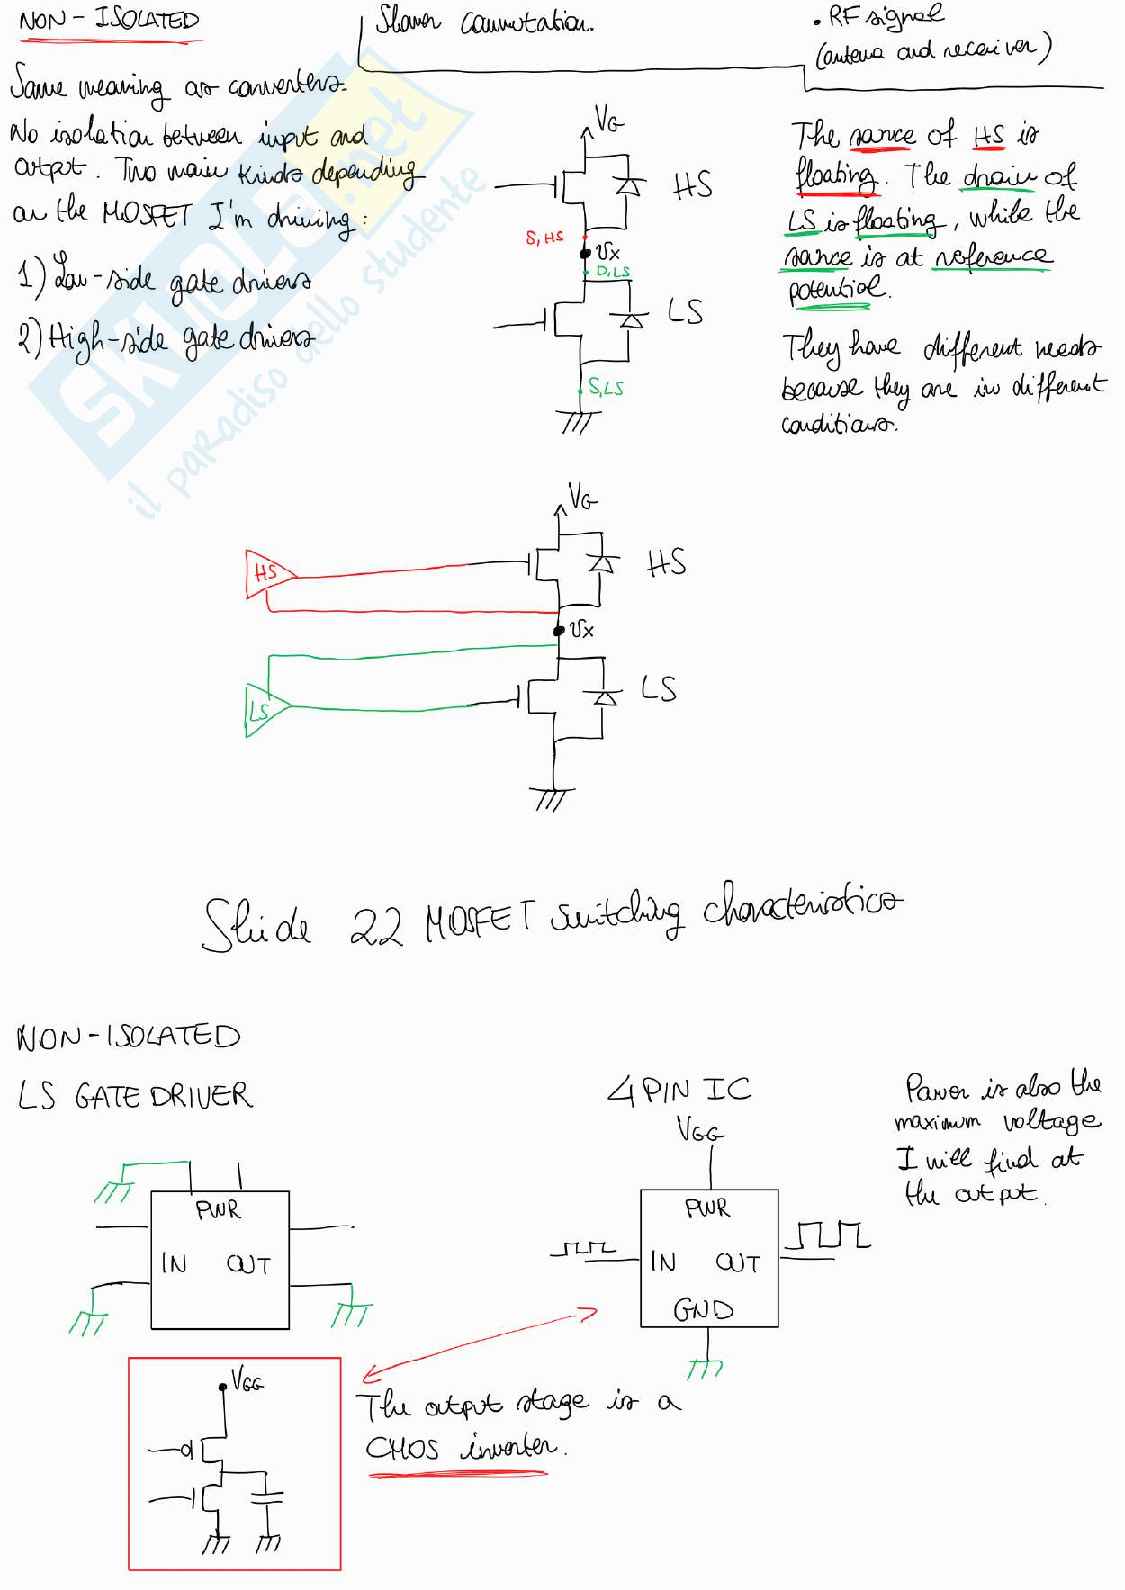 NON-ISOLATED
Slower commutation.
. RF signal
(antenna and receiver)
Same meaning as converters.
No isolation between input and
output. Two main kinds depending
on the MOSFET I'm driving:
1) Low-side gate drivers
2) High-side gate drivers
VG
HS
S,HS
Vx
D,LS
LS
S,LS
The source of HS is
floating. The drain of
LS is floating, while the
source is at reference
potential.
They have different needs
because they are in different
conditions.
SKUOLA.net
il paradiso dello studente
VG
HS
HS
Vx
LS
LS
Slide 22 MOSFET switching characteristics
NON-ISOLATED
LS GATE DRIVER
PWR
IN OUT
4 PIN IC
VGG
PWR
IN OUT
GND
Power is also the
maximum voltage
I will find at
the output.
VGG
The output stage is a
CMOS inverter.